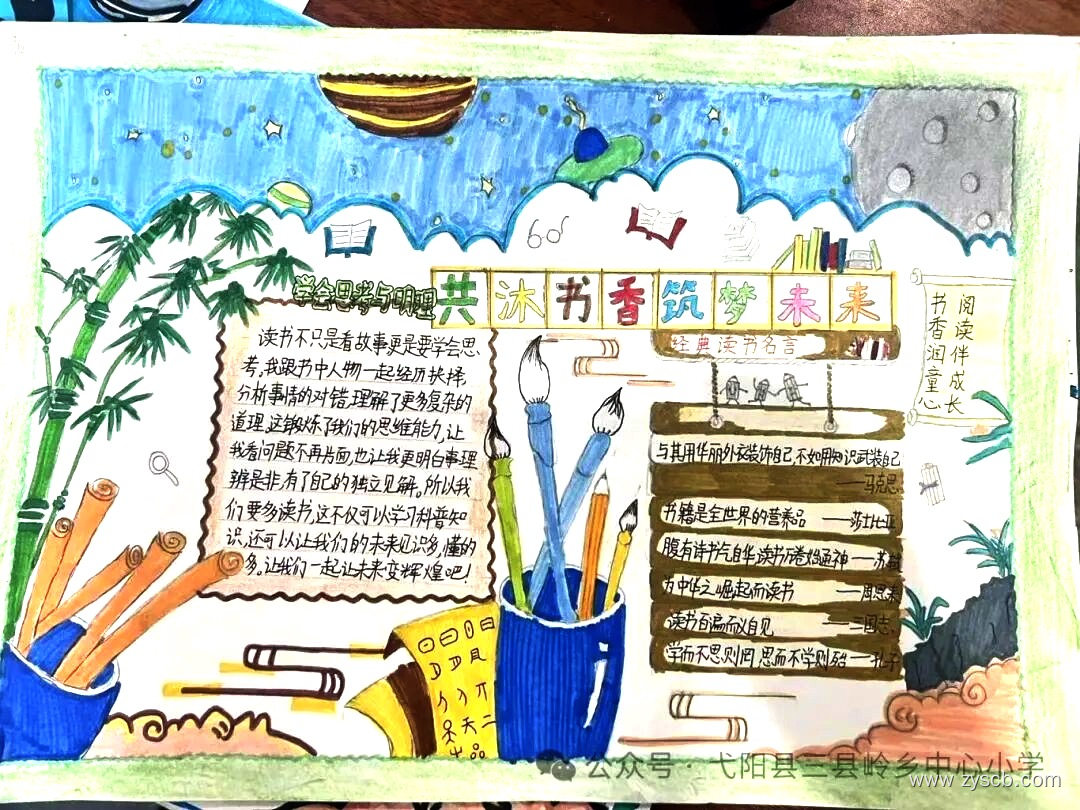 共沐书香筑梦未来
学会思考与明理
读书不只是看故事更是要学会思
考，我跟书中人物一起经历抉择，
分析事情的对错，理解了更多复杂的
道理。这锻炼了我们的思维能力，让
我看问题不再片面，也让我更明白事理
辨是非，有了自己的独立见解。所以我
们要多读书，这不仅可以学习科普知
识，还可以让我们的未来见识多，懂的
多。让我们一起让未来变辉煌吧！
经典读书名言
与其用华丽外衣装饰自己，不如用知识武装自己
——马克思
书籍是全世界的营养品 ——莎士比亚
腹有诗书气自华，读书万卷始通神——苏轼
为中华之崛起而读书 ——周恩来
读书百遍而义自见 ——三国志
学而不思则罔，思而不学则殆——孔子
阅读伴成长
书香润童心
公众号·弋阳县三县岭乡中心小学
www.zyscb.com